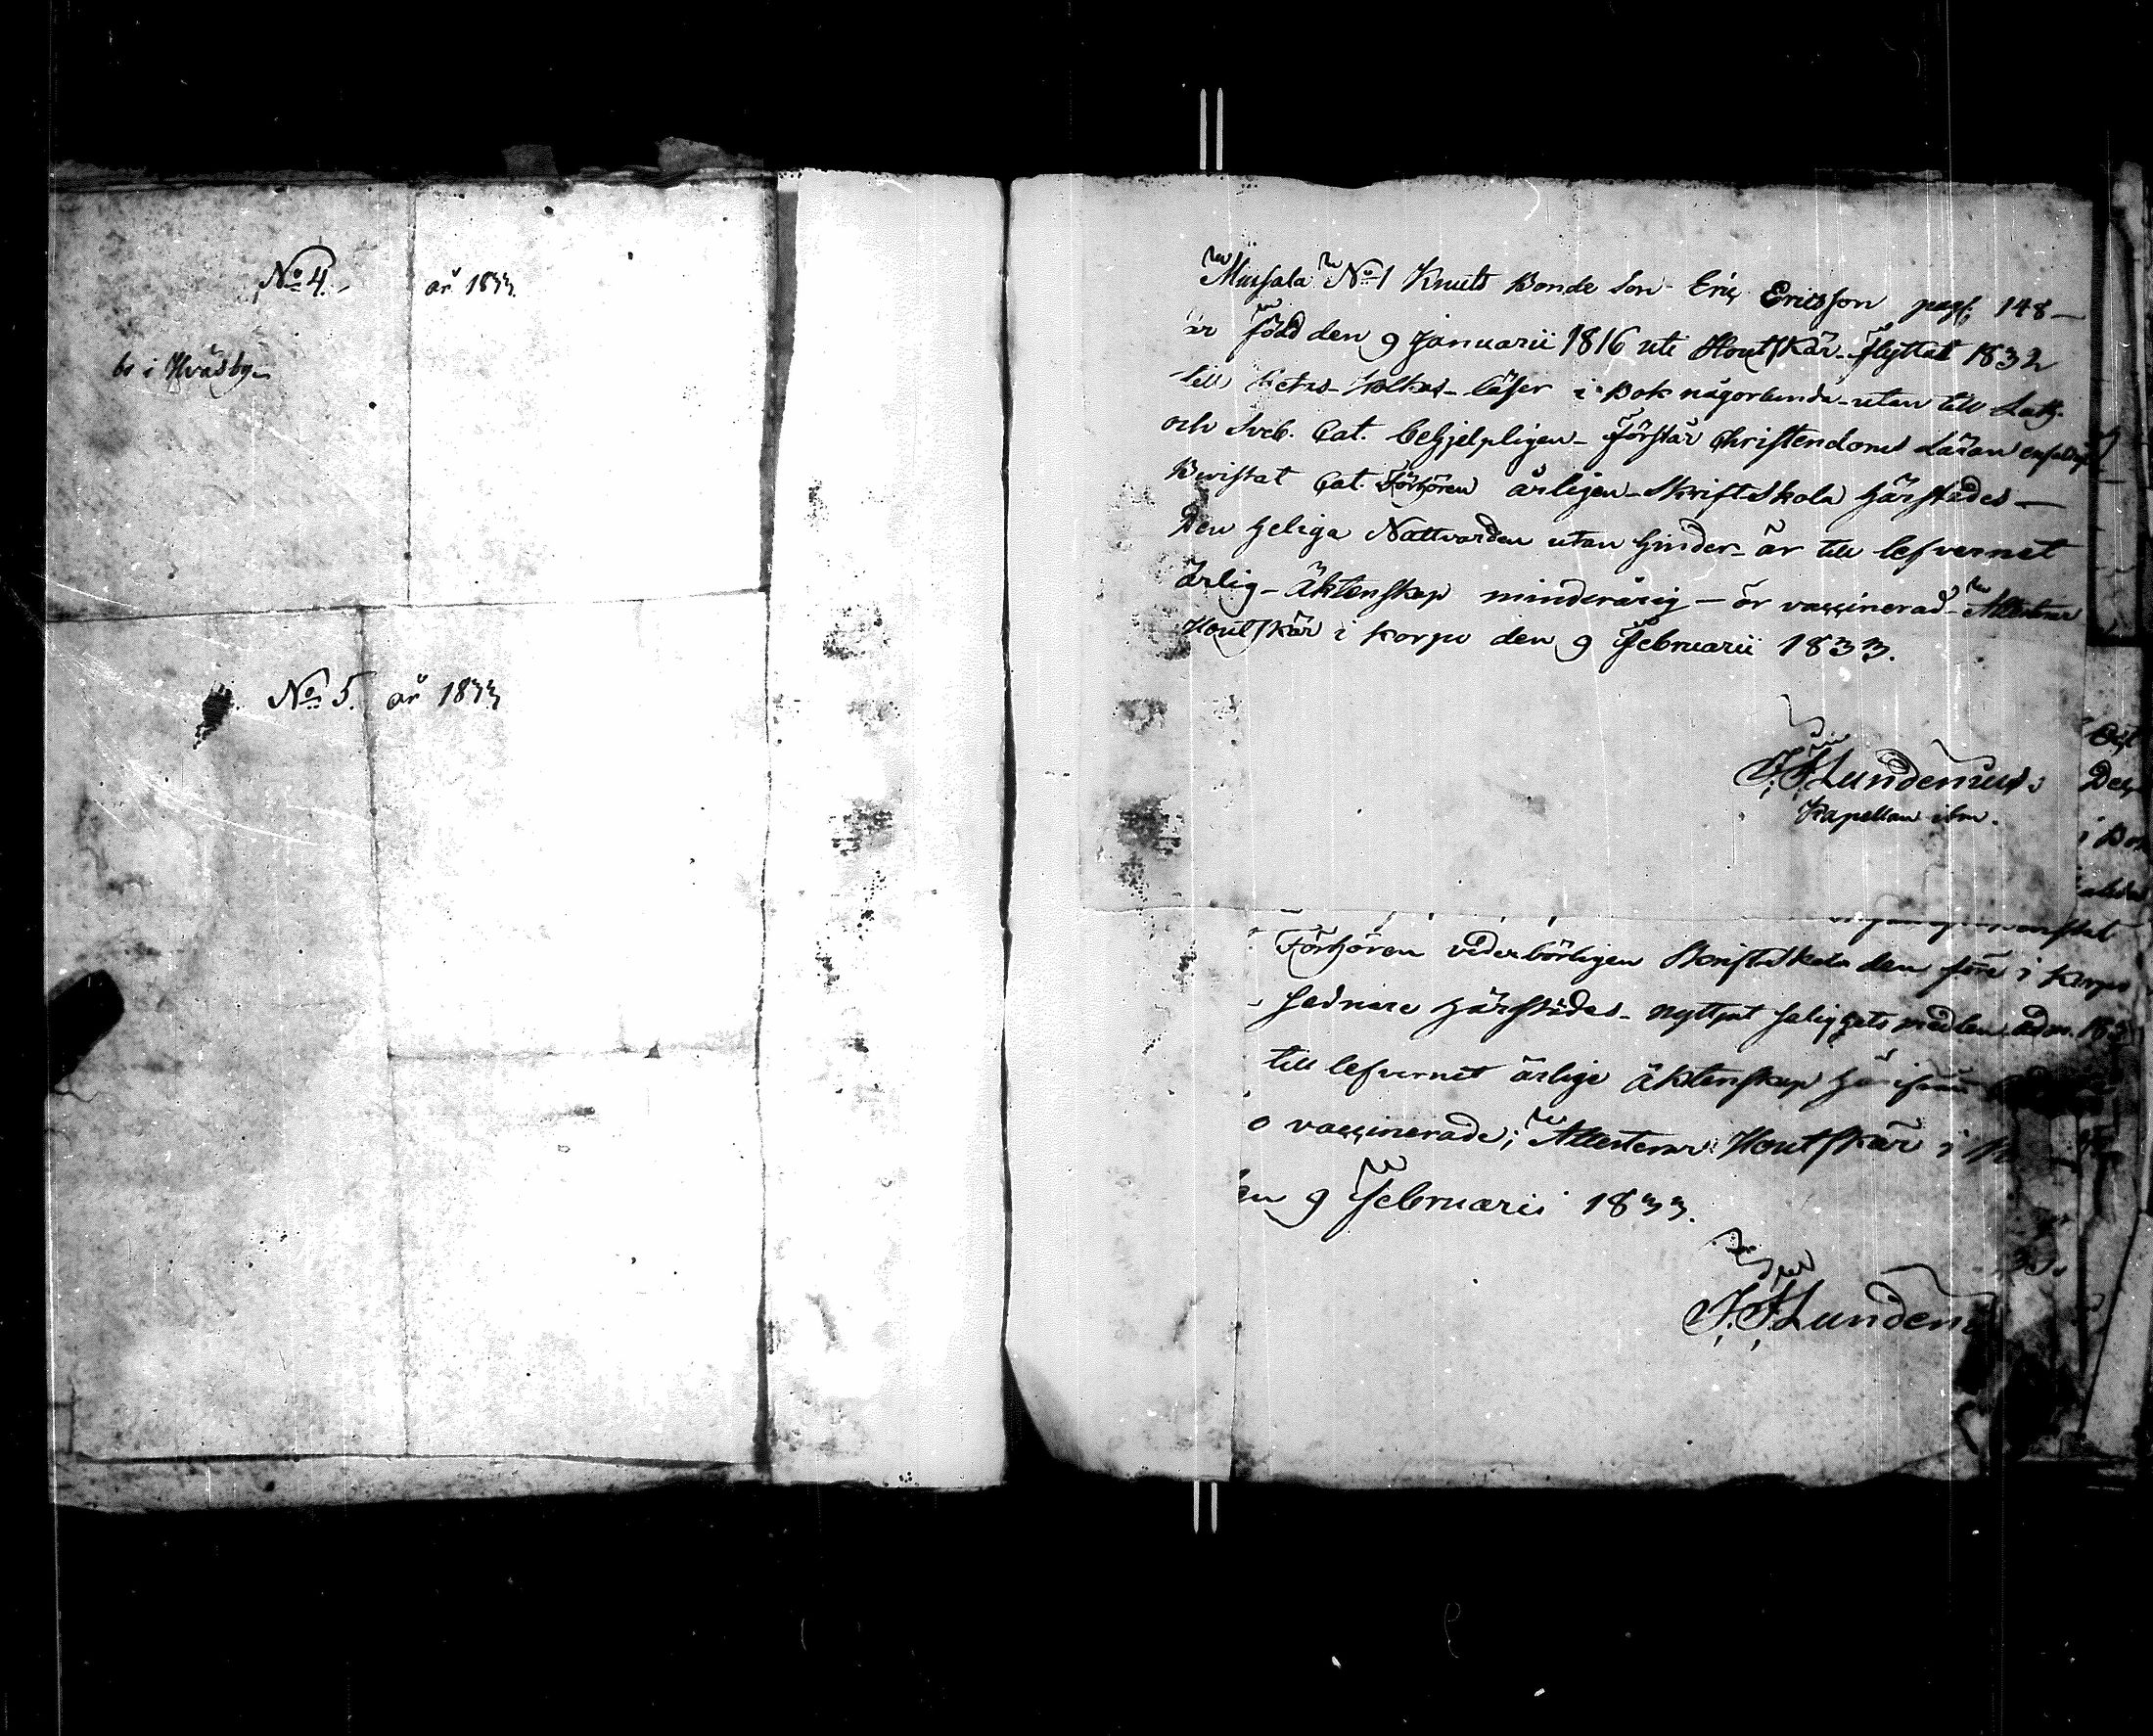 No 4. år 1833.
bs i Hväsby
No 5. år 1833
Mussala No 1 Knuts Bonde Son Eric Ericsson pag; 148
är född den 9 Januarii 1816 uti Houtskär flyttat 1832
till läser i Bok någorlunda utan till Luth.
och Sveb. Cat. behjelpligen Förstår Christendoms Läran
Bevistat Cat. Förhören årligen Skriftskola härstädes
Den heliga Nattvarden utan hinder är till lefvernet
ärlig Äktenskap minderårig är vaccinerad Attesterar
Houtskär i Korpo den 9 Februarii 1833.
J. F. Lundenius
Kapellan ibm.
Förhören vederbörligen Skriftskola den förre i Korpo
sednare härstädes nyttjat salighets medlen
till lefvernet ärlige äktenskap
o vaccinerade; Attesterar Houtskär i
en 9 Februarii 1833.
J. F. Lunden